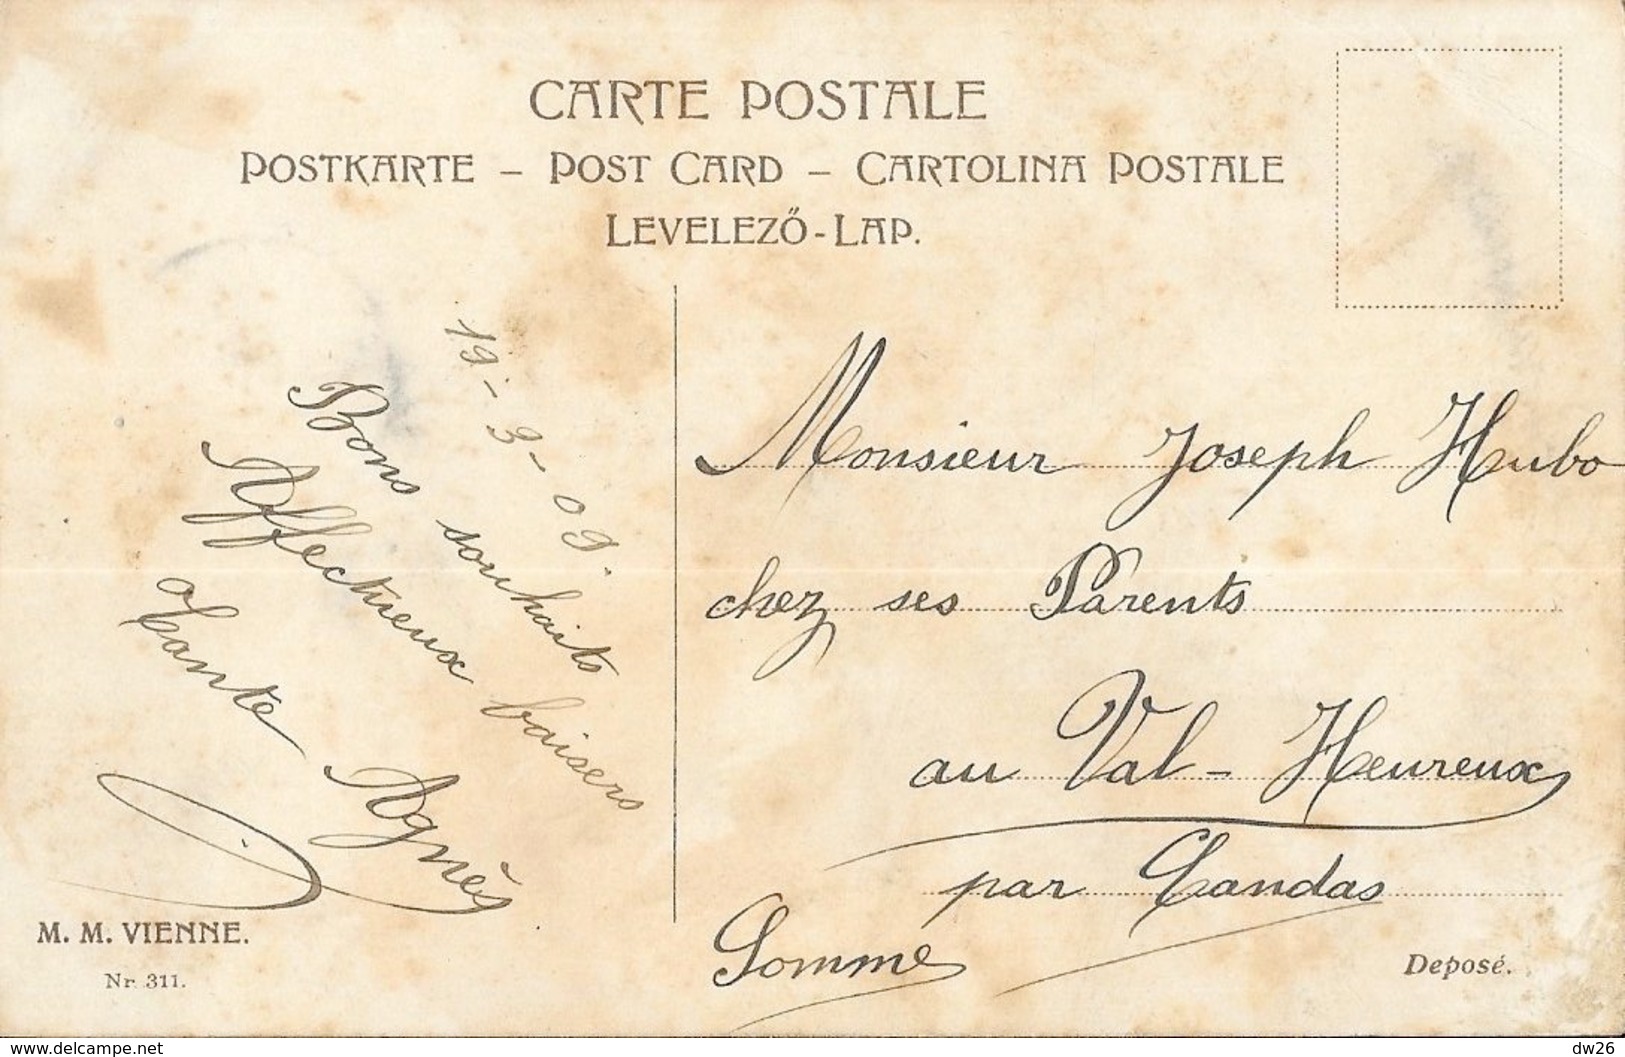 CARTE POSTALE
POSTKARTE – POST CARD – CARTOLINA POSTALE
LEVELEZŐ-LAP.
19-3-09.
Bons souhaits
Affectueux baisers
Tante Agnès
Monsieur Joseph Hubo
chez ses Parents
au Val-Heureux
par Candas
Somme
M. M. VIENNE.
Nr. 311.
Deposé.
www.delcampe.net
dw26